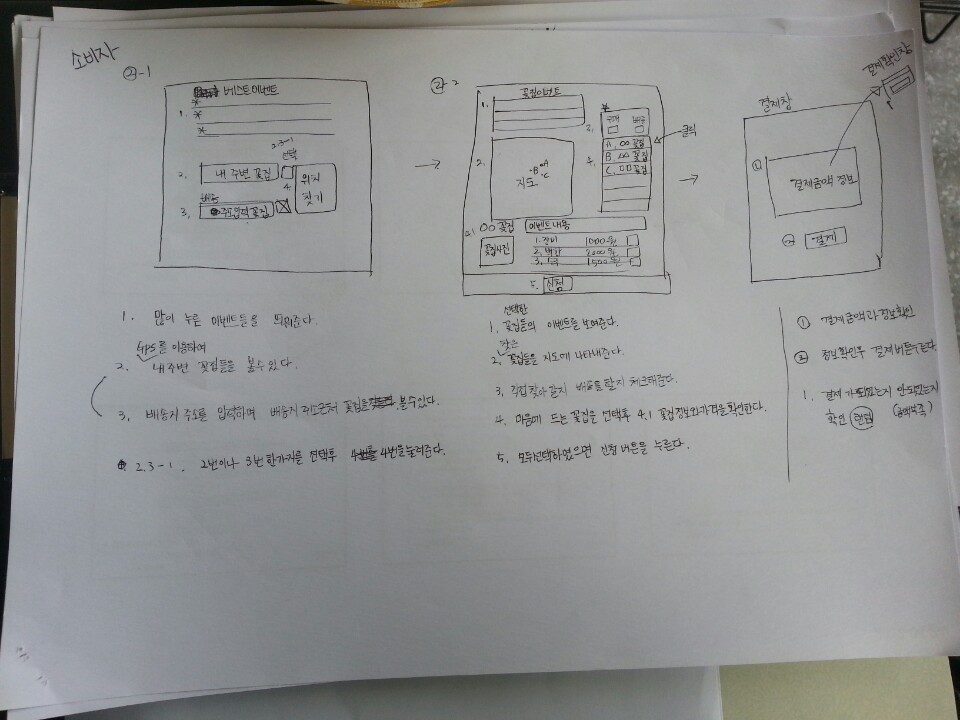 소비자
②-1
베스트 이벤트
1.
*
*
*
2,3-1
선택
2. 내 주변 꽃집
4.
위치
찾기
배송
3. 주소입력 꽃집
→
②-2
꽃집이벤트
1.
2.
지도
A
B
C
*
3.
구매
배송
클릭
4.
A. ○○ 꽃집
B. △△ 꽃집
C. □□ 꽃집
4.1 ○○ 꽃집
이벤트내용
꽃집사진
1. 장미 1000원
2. 백합 2000원
3. 1500원
5. 신청
→
결제창
결제확인창
①
결제금액 정보
②
결제
1. 많이 누른 이벤트들을 띄워준다.
GPS를 이용하여
2. 내 주변 꽃집들을 볼수있다.
3. 배송지 주소를 입력하여 배송지 주소근처 꽃집을 볼수있다.
2.3-1. 2번이나 3번 한가지를 선택후 4번을눌러준다.
선택한
1. 꽃집들의 이벤트를 보여준다.
찾은
2. 꽃집들을 지도에 나타내준다.
3. 직접 찾아갈지 배송을 할지 체크해준다.
4. 마음에 드는 꽃집을 선택후 4.1 꽃집정보와가격을확인한다.
5. 모두선택하였으면 신청 버튼을 누른다.
① 결제금액과 정보확인
② 정보확인후 결제버튼누른다.
1. 결제가되었는지 안되었는지
확인 팝업 (금액부족)